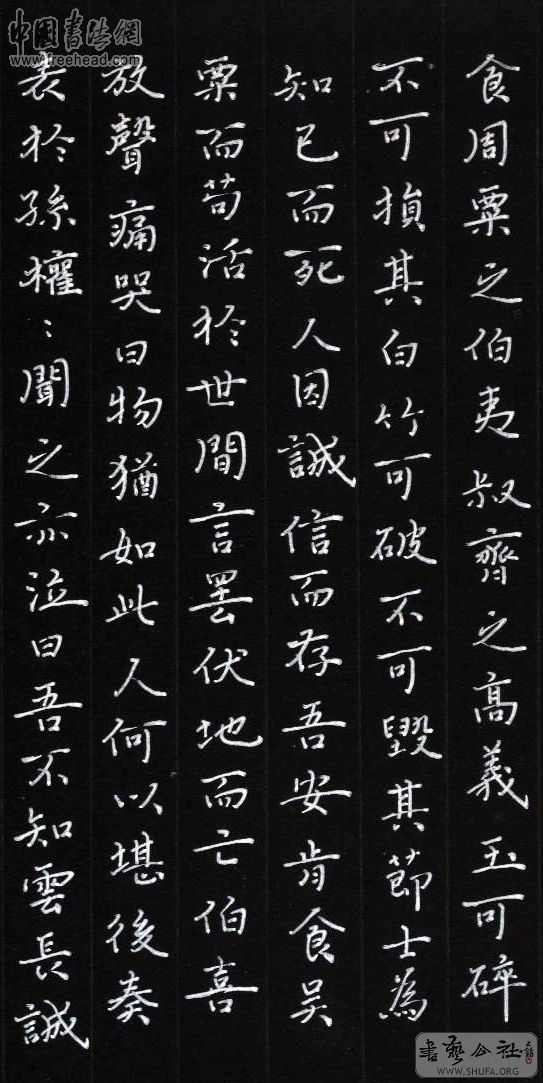 食周粟之伯夷叔齊之高義玉可碎
不可損其白竹可破不可毀其節士為
知己而死人因誠信而存吾安肯食吴
粟而苟活於世間言罢伏地而亡伯喜
放聲痛哭曰物猶如此人何以堪後奏
表於孫權〻聞之亦泣曰吾不知雲長誠
中國書法網
www.freehead.com
書藝公社
WWW.SHUFA.ORG